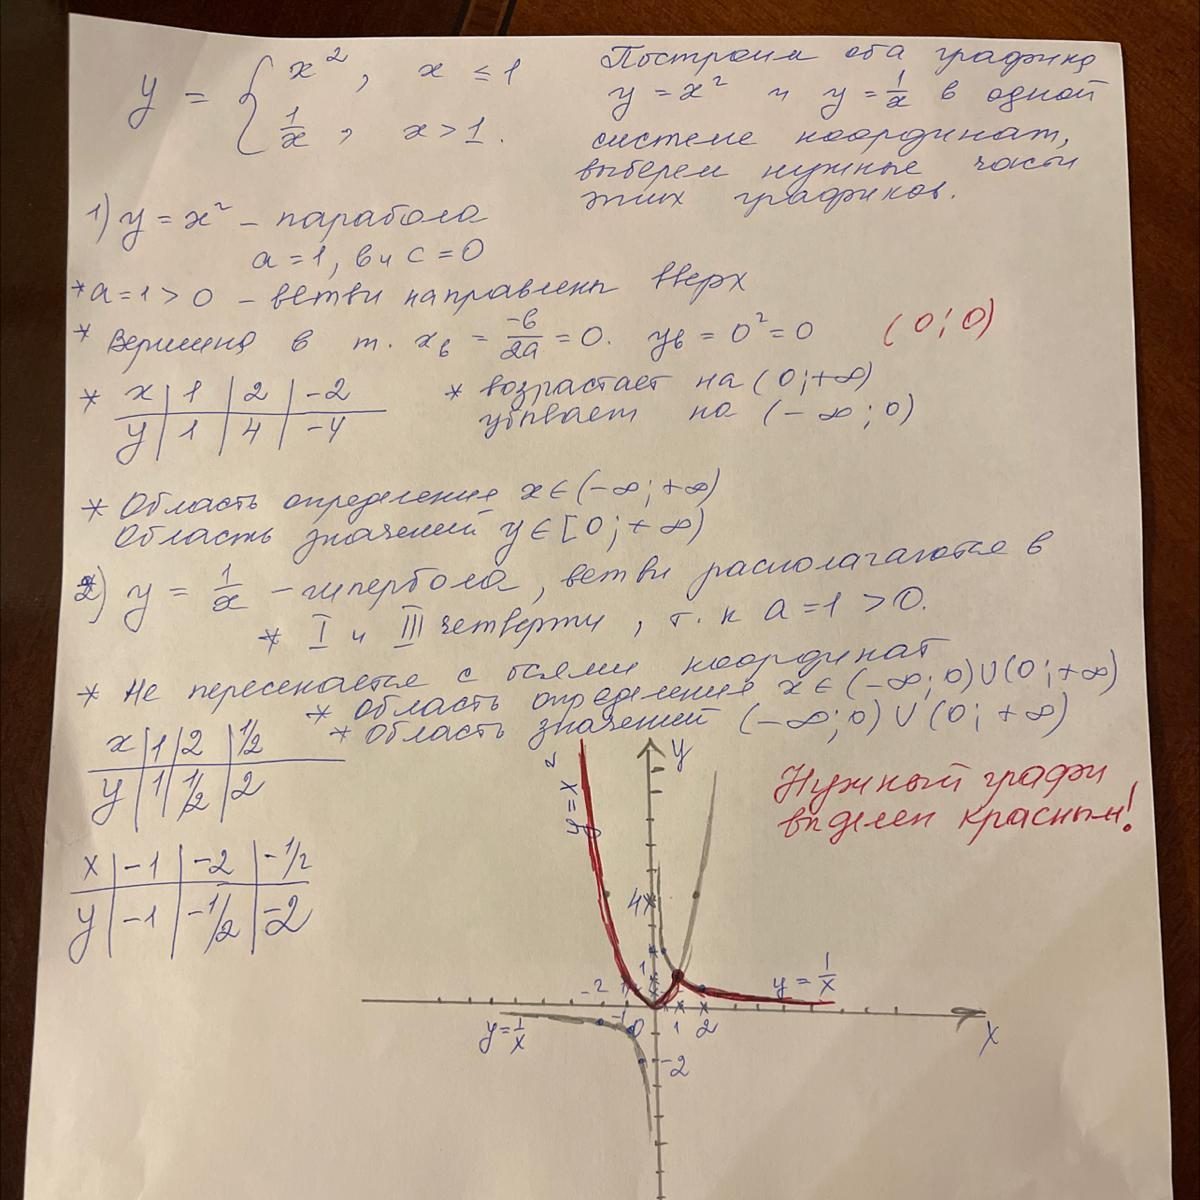 y = { x², x ≤ 1
1/x, x > 1.
Построим оба графика
y = x² и y = 1/x в одной
системе координат,
выберем нужные часы
этих графиков.
1) y = x² – парабола
a = 1, в и c = 0
* a = 1 > 0 – ветви направлены вверх
* Вершина в т. xв = -в/2a = 0. yв = 0² = 0 (0; 0)
* x | 1 | 2 | -2
y | 1 | 4 | -4
* возрастает на (0; +∞)
убывает на (-∞; 0)
* Область определения x ∈ (-∞; +∞)
Область значений y ∈ [0; +∞)
2) y = 1/x – гипербола, ветви располагаются в
* I и III четверти, т. к a = 1 > 0.
* Не пересекается с осями координат
* область определения x ∈ (-∞; 0) U (0; +∞)
* Область значений (-∞; 0) U (0; +∞)
x | 1 | 2 | 1/2
y | 1 | 1/2 | 2
x | -1 | -2 | -1/2
y | -1 | -1/2 | -2
Нужный графи
выделен красным!
y = x²
y
4
1
-2
-1
0
1
2
y = 1/x
x
y = 1/x
-2